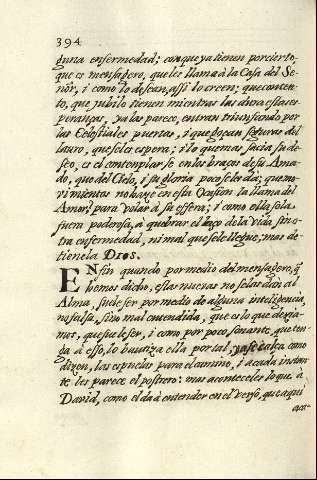 394
guna enfermedad; con que ya tienen por cierto,
que es mensagero, que les llama à la Casa del Se-
ñor, i como lo desean, assi lo creen; que conten-
to, que jubilo tienen mientras les dura esta es-
perança, ya las parece, entran triunfando por
las Celestiales puertas, i que gozan seguras del
lauro, que se les espera; i lo que mas sacia su de-
seo, es el contemplarse en los braços de su Ama-
do, que del Cielo, i su gloria poco se les dà; que mo-
vimientos no haze en esta Ocasion la llama del
Amor, para volar à su esfera; i como ella sola
fuera poderosa, à quebrar el laço de la vida sin o-
tra enfermedad, ni mal que se le llegue; mas de-
tienela DIOS.
ENfin quando por medio del mensagero, q̃
hemos dicho, estas nuevas no se las dàn al
Alma, suele ser por medio de alguna inteligencia,
no falsa, sino mal entendida, que es lo que dexia-
mos, que suele ser, i como por poco sonante, que ten-
ga à esso, lo bautiza ella por tal, ya se calça como
dizen, las espuelas para el camino, i à cada instan-
te les parece el postrero: mas aconteceles lo que à
David, como el dà à entender en el verso, que aqui